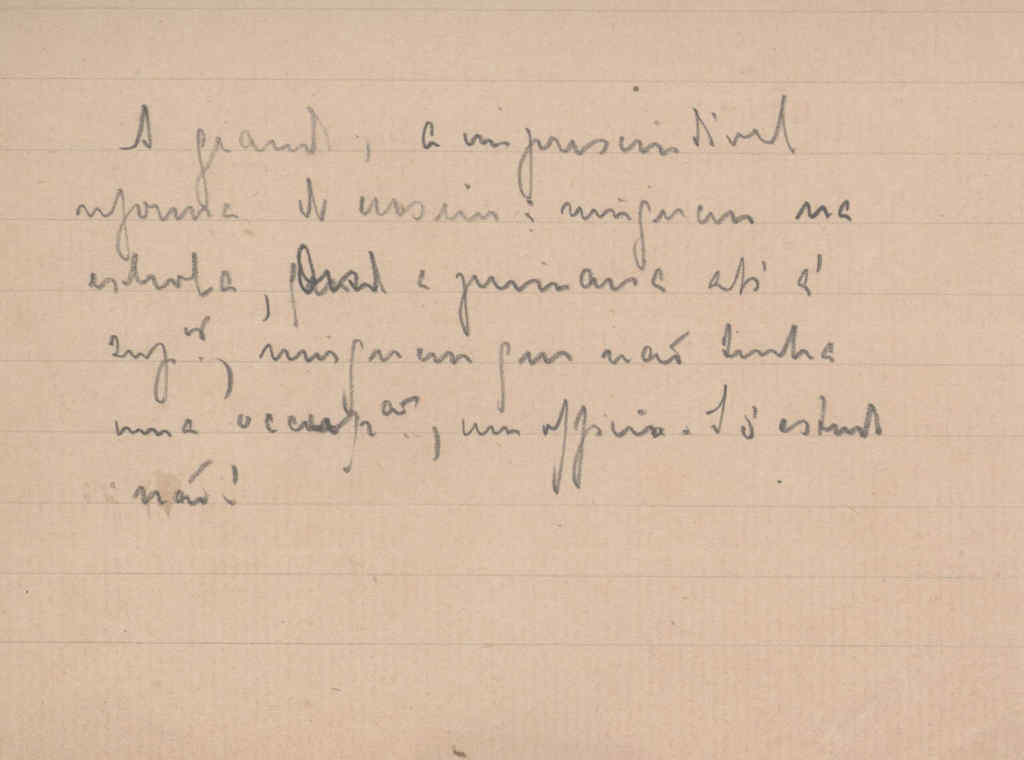 A grande, a imprescindivel
reforma de ensino: ninguem na
eschola, desde a primaria até á
sup.or, ninguem que não tenha
uma occup.ão, um officio. Só estudo
não!